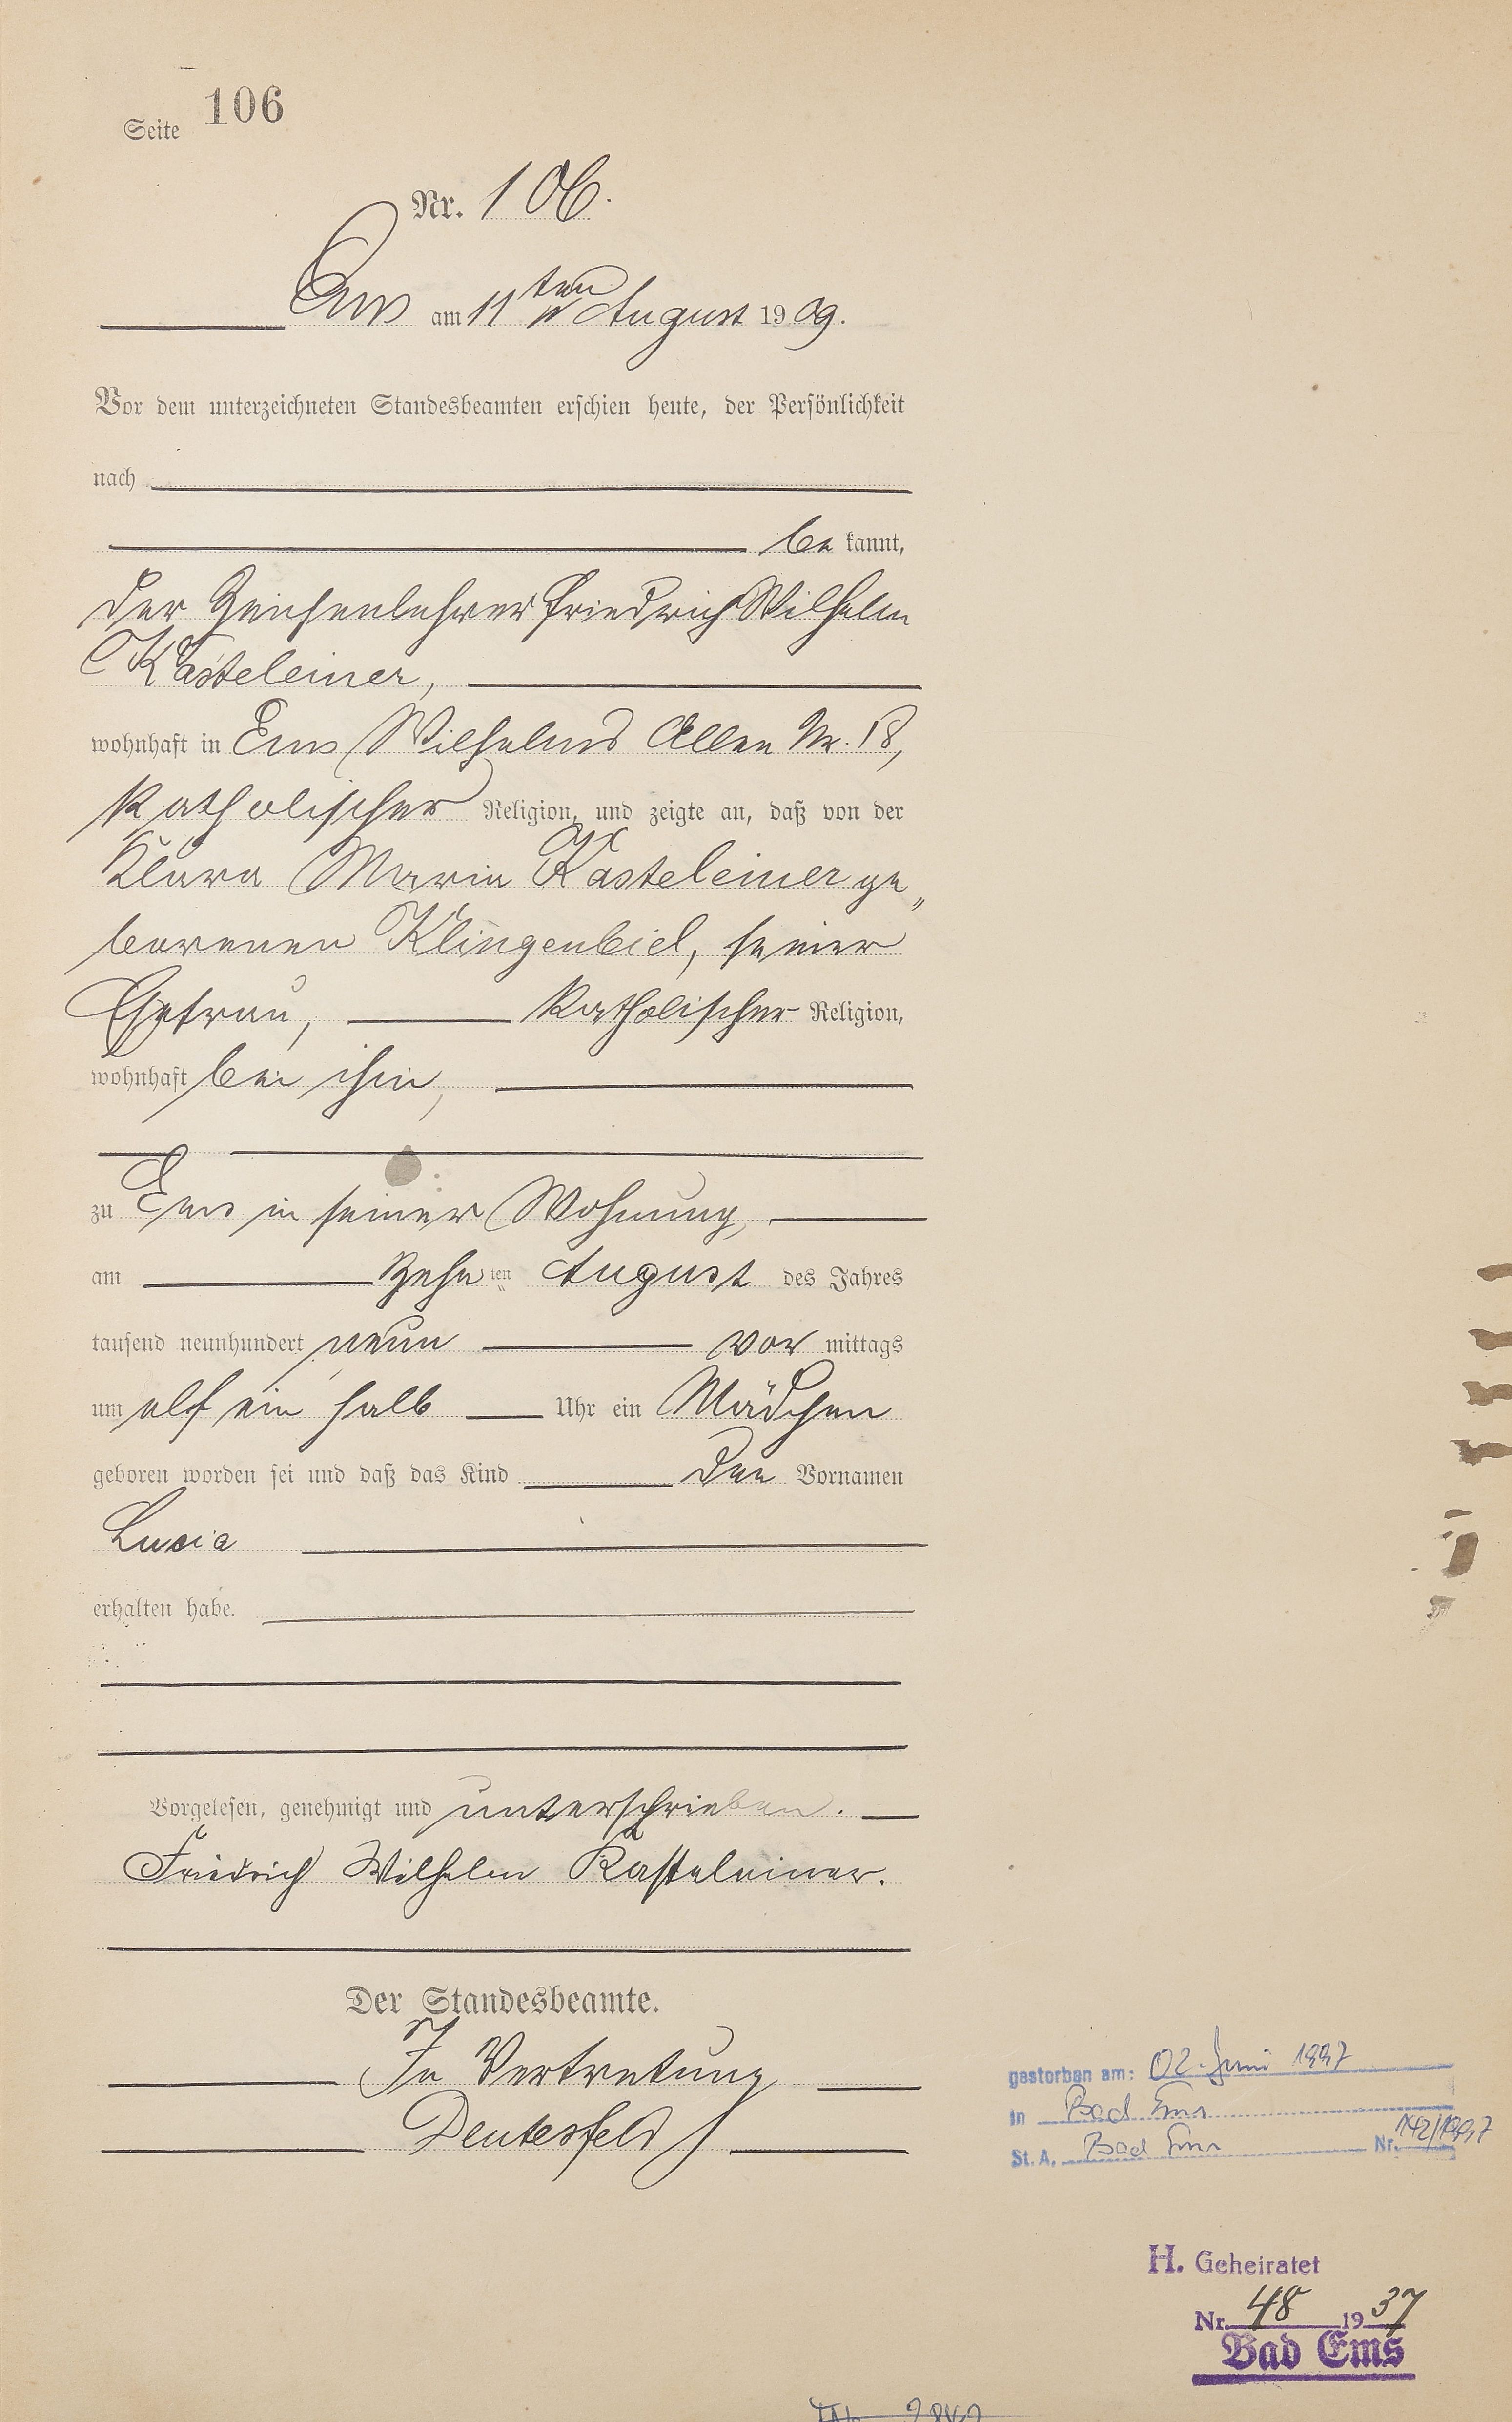 Seite 106
Nr. 106.
Ems am 11ten August 1909.
Vor dem unterzeichneten Standesbeamten erschien heute, der Persönlichkeit
nach
be kannt,
der Zeichenlehrer Friedrich Wilhelm
Kasteleiner,
wohnhaft in Ems Wilhelms Allee Nr. 18,
katholischer Religion, und zeigte an, daß von der
Klara Maria Kasteleiner ge„
borenen Klingenbiel, seiner
Ehefrau, katholischer Religion,
wohnhaft bei ihm,
zu Ems in seiner Wohnung,
am zehnten August des Jahres
tausend neunhundert neun vor mittags
um elf ein halb Uhr ein Mädchen
geboren worden sei und daß das Kind den Vornamen
Lucia
erhalten habe.
Vorgelesen, genehmigt und unterschrieben.
Friedrich Wilhelm Kasteleiner.
Der Standesbeamte.
In Vertretung
Deutesfeld
gestorben am: 02. Juni 1997
in Bad Ems
St. A. Bad Ems Nr. 142/1997
H. Geheiratet
Nr. 48 1937
Bad Ems